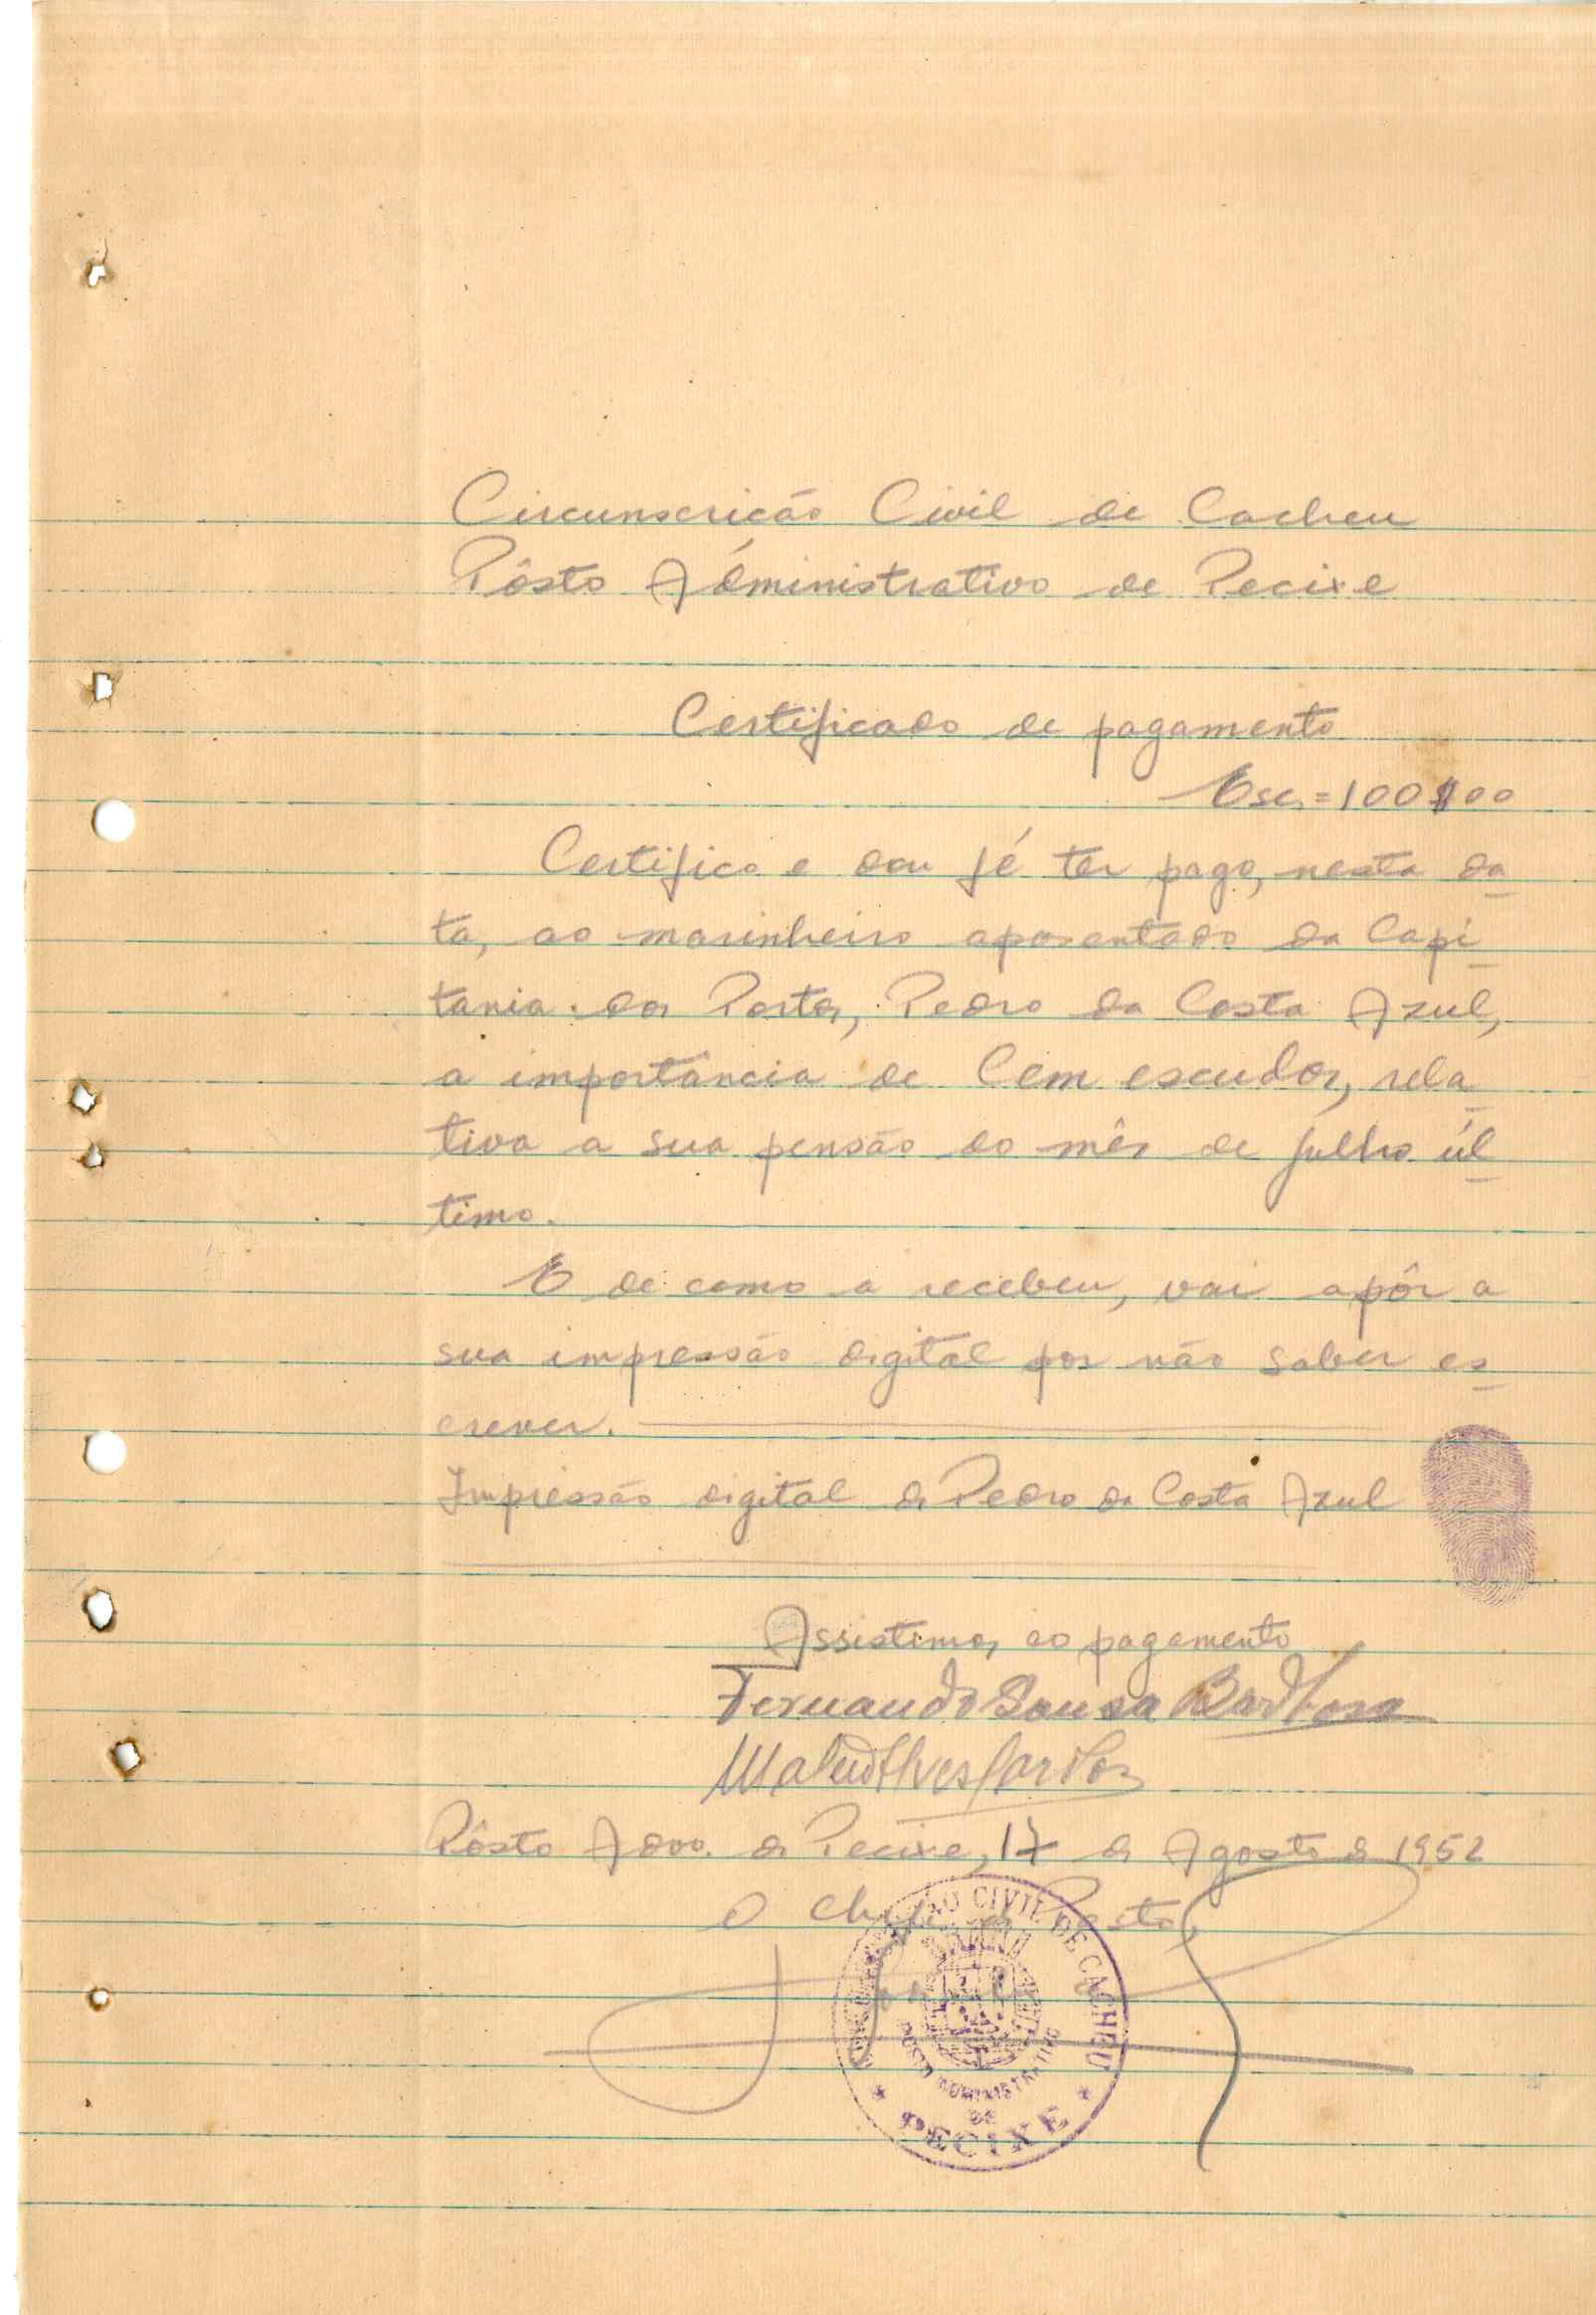 Circunscrição Civil de Cacheu
Pôsto Administrativo de Pecixe
Certificado de pagamento
Esc.=100$00
Certifico e dou fé ter pago, nesta da
ta, ao marinheiro aposentado da Capi
tania dos Portos, Pedro da Costa Azul,
a importância de Cem escudos, rela
tiva a sua pensão do mês de julho úl
timo.
E de como a recebeu, vai apôr a
sua impressão digital por não saber es
crever.
Impressão digital de Pedro da Costa Azul
Assistimos ao pagamento
Fernando Sousa Barbosa
Pôsto Admo. de Pecixe, 17 de Agosto de 1952
O Chefe de Posto,
CIVIL DE CACHEU
POSTO ADMINISTRATIVO
DE
PECIXE